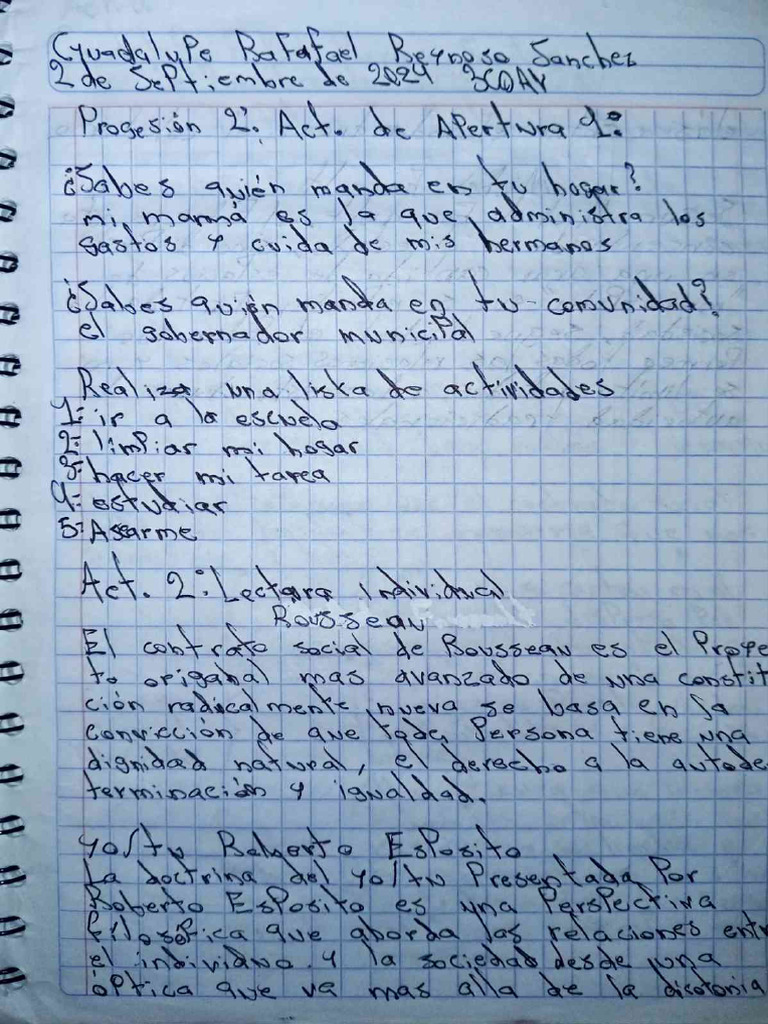 Guadalupe Rafafael Reynoso Sanchez
2 de Septiembre de 2024 3CDAV
Progesión 2: Act. de Apertura 1:
¿Sabes quién manda en tu hogar?
mi mamá es la que administra los
gastos y cuida de mis hermanos
¿Sabes quién manda en tu comunidad?
el gobernador municipal
Realiza una lista de actividades
1- ir a la escuela
2- limpiar mi hogar
3- hacer mi tarea
4- estudiar
5- Assarme
Act. 2: Lectura individual
Rousseau
El contrato social de Rousseau es el Proye
to origanal mas avanzado de una constit
ción radicalmente nueva se basa en la
convicción de que toda Persona tiene una
dignidad natural, el derecho a la autode
terminación y igualdad.
yo/tu Roberto Esposito
La doctrina del yo/tu Presentada Por
Roberto Esposito es una Perspectiva
filosófica que aborda las relaciones entr
el individuo y la sociedad desde una
óptica que va mas alla de la dicotonia